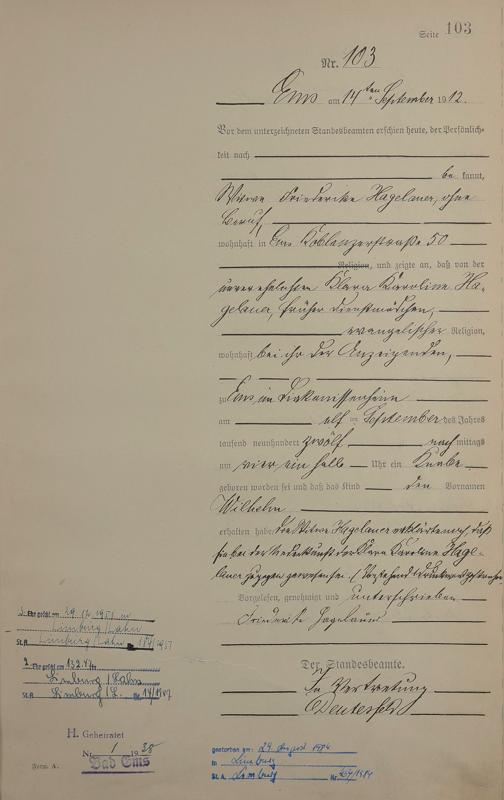 Seite 103
Nr. 103
Ems am 14ten September 1912.
Vor dem unterzeichneten Standesbeamten erschien heute, der Persönlich-
keit nach
be kannt,
Witwe Friedericke Hagelauer, ohne
Beruf,
wohnhaft in Ems Koblenzerstraße 50
Religion, und zeigte an, daß von der
unverehelichten Klara Karoline Ha-
gelauer, früher Dienstmädchen,
evangelischer Religion,
wohnhaft bei ihr der Anzeigenden,
zu Ems im Diakonissenheim
am elf ten September des Jahres
tausend neunhundert zwölf nach mittags
um vier ein halb Uhr ein Knabe
geboren worden sei und daß das Kind den Vornamen
Wilhelm
erhalten habe. Die Witwe Hagelauer erklärte noch, daß
sie bei der Niederkunft der Klara Karoline Hage-
lauer zugegen gewesen sei. (Vorstehend Druckworte gestrichen
Vorgelesen, genehmigt und unterschrieben
Friedericke Hagelauer
Der Standesbeamte.
In Vertretung
1. Ehe geschl. am 29.12.1951 in
Limburg/Lahn
St.A. Limburg/Lahn
2. Ehe geschl. am
Limburg/Lahn
St.A. Limburg/L. Nr.
H. Geheiratet
Nr. 1 1938
Bad Ems
Form. A.
gestorben am: 29. August 1984
in Limburg
St. A. Limburg Nr.